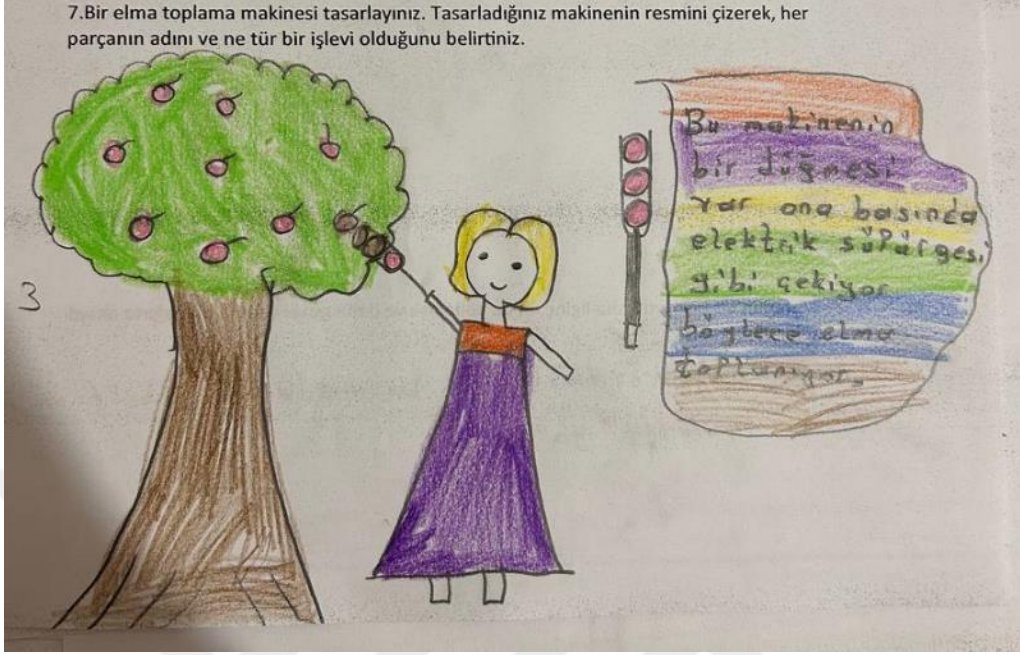 7.Bir elma toplama makinesi tasarlayınız. Tasarladığınız makinenin resmini çizerek, her
parçanın adını ve ne tür bir işlevi olduğunu belirtiniz.
3
Bu makinenin
bir düğmesi
var ona basında
elektrik süpürgesi
gibi çekiyor
böylece elma
toplanıyor.